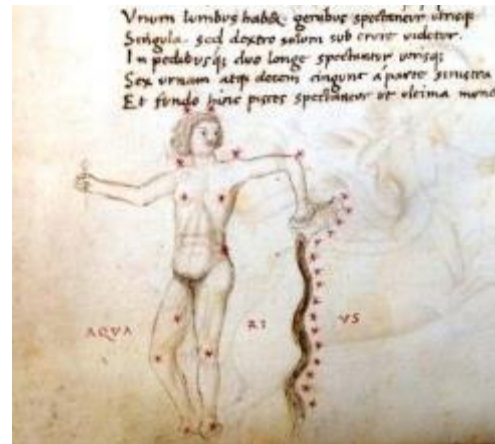 Vnum lumbus habet. genibus spectantur utrisq;
Singula. sed dextro solum sub crure uidetur.
In pedibusq; duo longe spectantur utrisq;
Sex urnam atq; decem cingunt a parte sinistra
Et fundo hinc pisces spectantur ut ultima
AQVA RI VS